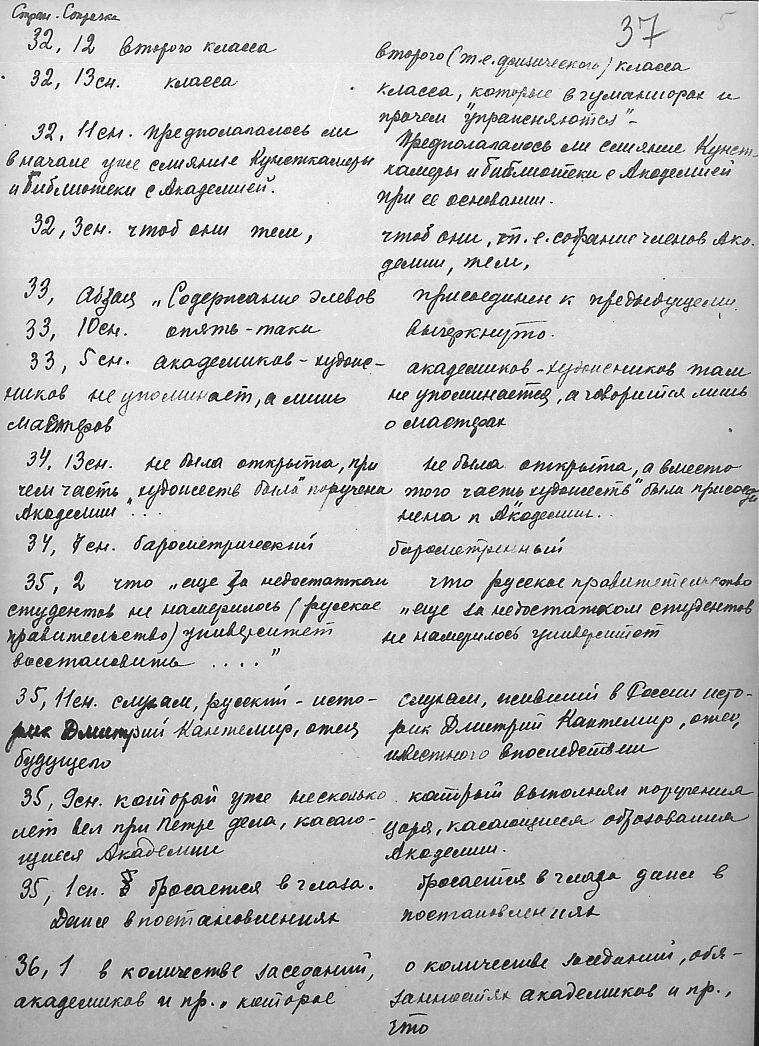 Стран. Строчка
37
5
32, 12 второго класса
второго (т.е. физического) класса
32, 13сн. класса
класса, которые в гуманиорах и
прочем "упражняются"-
32, 11сн. предполагалось ли
в начале уже слияние Кунсткамеры
и библиотеки с Академией.
Предполагалось ли слияние Кунст-
камеры и библиотеки с Академией
при ее основании.
32, 3сн. чтоб они тем,
чтоб они, т.е. собрание членов Ака-
демии, тем,
33, Абзац „Содержание элевов
присоединен к предыдущему.
33, 10сн. опять-таки
вычеркнуто.
33, 5сн. академиков-худож-
ников не упоминает, а лишь
мастеров
академиков-художников там
не упоминается, а говорится лишь
о мастерах
34, 13сн. не была открыта, при
чем часть „художеств была" поручена
Академии"...
не была открыта, а вместо
того часть художеств" была присоеди
нена к Академии...
34, 7сн. барометрический
барометренный
35, 2 что „еще за недостатком
студентов не намерилось (русское
правительство) университет
восстановить ...."
что русское правительство
„еще за недостатком студентов
не намерилось университет
35, 11сн. слухам, русский-исто-
рик Дмитрий Кантемир, отец
будущего
слухам, живший в России исто-
рик Дмитрий Кантемир, отец
известного впоследствии
35, 9сн. который уже несколько
лет вел при Петре дела, касаю-
щиеся Академии
который выполнял поручения
царя, касающиеся образования
Академии.
35, 1сн. бросается в глаза.
Даже в постановлениях
бросается в глаза даже в
постановлениях
36, 1 в количестве заседаний,
академиков и пр., которое
о количестве заседаний, обя-
занностях академиков и пр.,
что